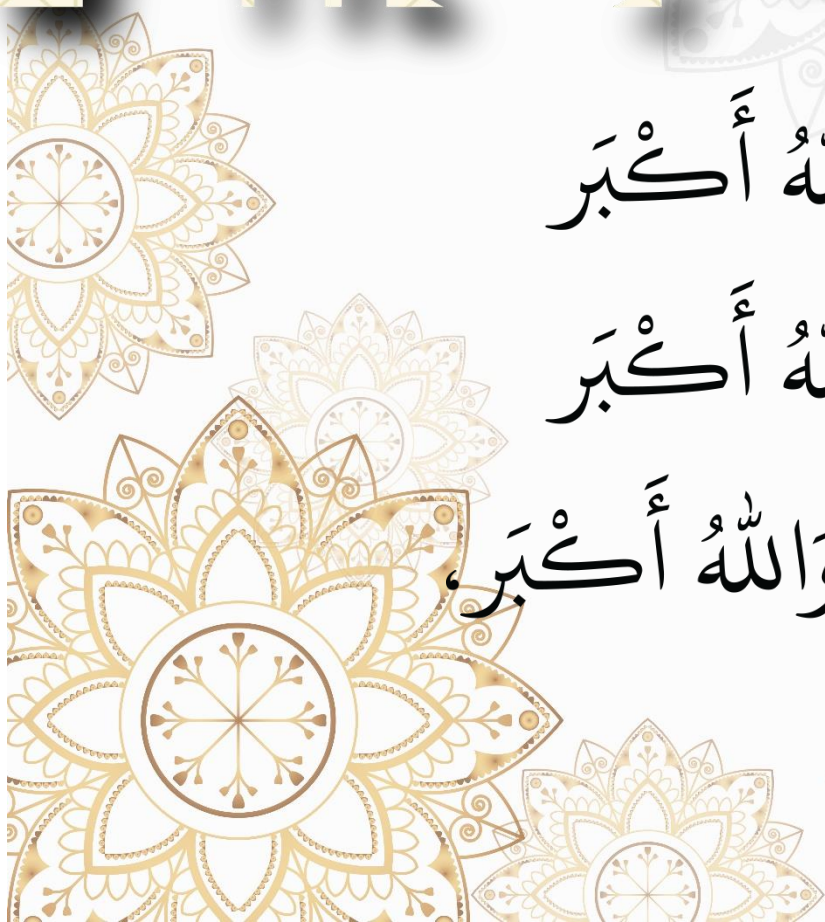 أَكْبَر
أَكْبَر
وَاللّٰهُ أَكْبَر،